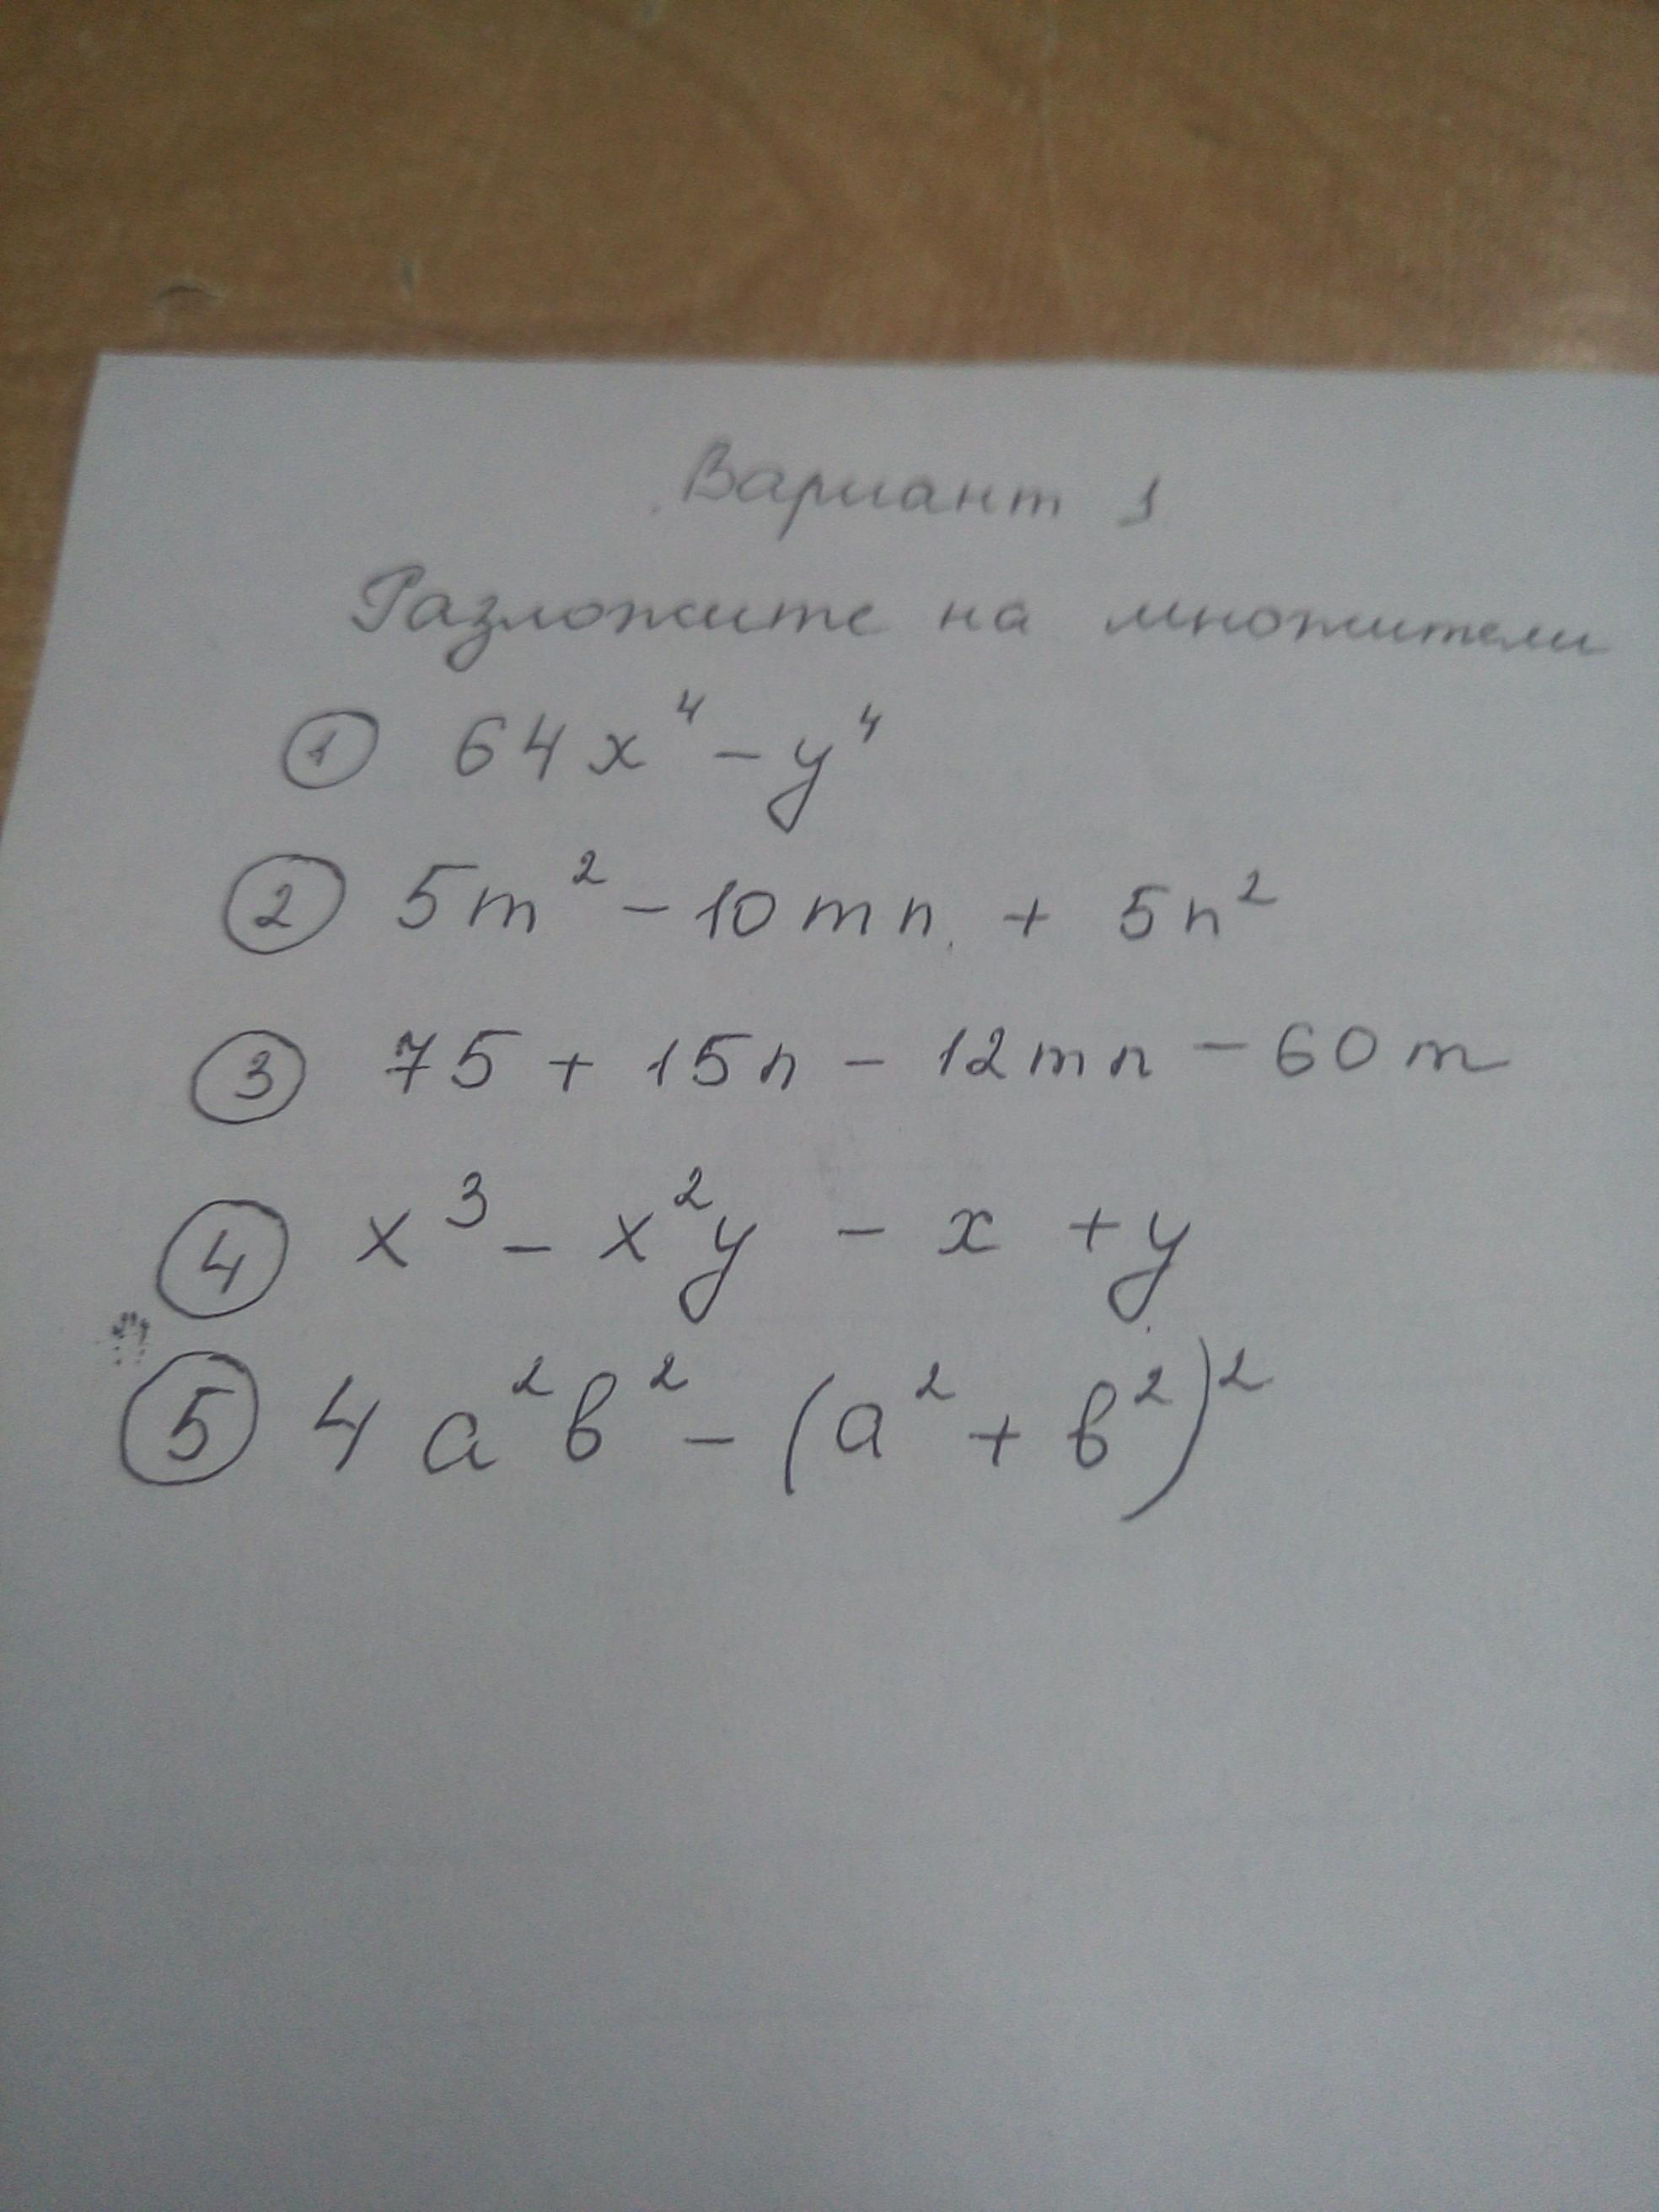 Вариант 1
Разложите на множители
① 64x⁴ - y⁴
② 5m² - 10mn + 5n²
③ 75 + 15n - 12mn - 60m
④ x³ - x²y - x + y
⑤ 4a²b² - (a² + b²)²